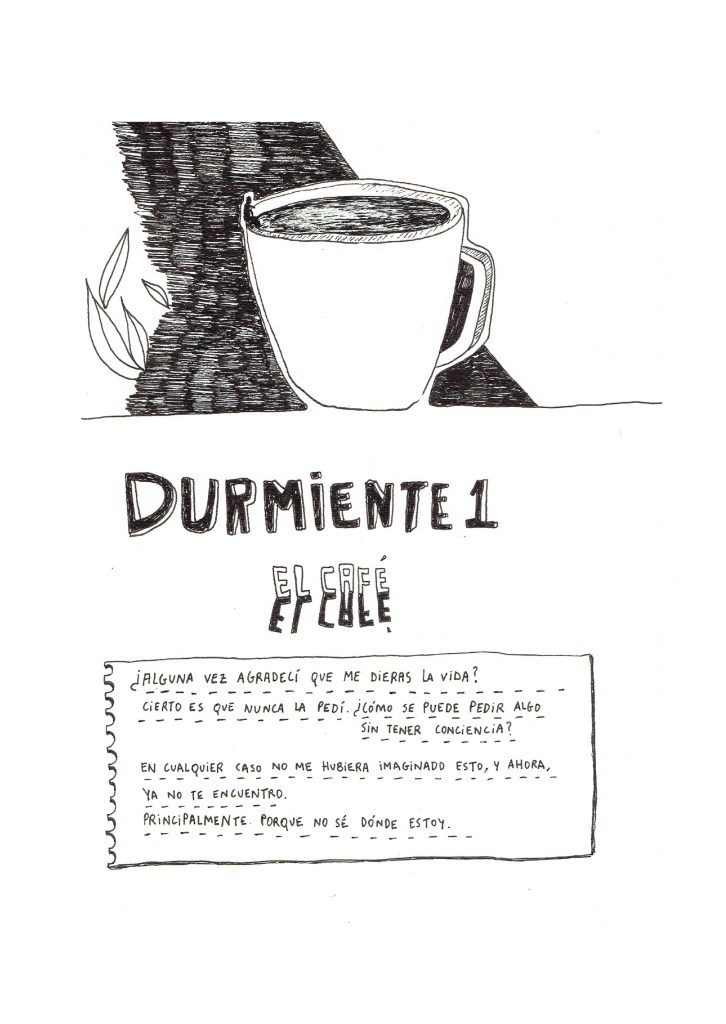 DURMiENTE 1
EL CAFÉ
¿ALGUNA VEZ AGRADECÍ QUE ME DIERAS LA VIDA?
CIERTO ES QUE NUNCA LA PEDÍ. ¿CÓMO SE PUEDE PEDIR ALGO
SIN TENER CONCIENCIA?
EN CUALQUIER CASO NO ME HUBIERA IMAGINADO ESTO, Y AHORA,
YA NO TE ENCUENTRO.
PRINCIPALMENTE PORQUE NO SÉ DÓNDE ESTOY.